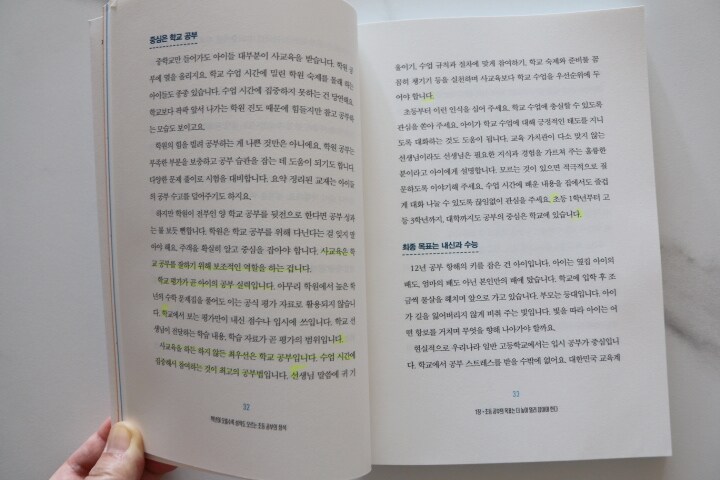 중심은 학교 공부
중학교만 들어가도 아이들 대부분이 사교육을 받습니다. 학원 공
부에 열을 올리지요. 학교 수업 시간에 밀린 학원 숙제를 몰래 하는
아이들도 종종 있습니다. 수업 시간에 집중하지 못하는 건 당연해요.
학교보다 격차 앞서 나가는 학원 진도 때문에 힘들지만 참고 공부하
는 모습도 보이고요.
학원의 힘을 빌려 공부하는 게 나쁜 것만은 아니에요. 학원 공부는
부족한 부분을 보충하고 공부 습관을 잡는 데 도움이 되기도 합니다.
다양한 문제 풀이로 시험을 대비합니다. 요약 정리된 교재는 아이들
의 공부 수고를 덜어주기도 하지요.
하지만 학원이 전부인 양 학교 공부를 뒷전으로 한다면 공부 성과
는 불 보듯 뻔합니다. 학원은 학교 공부를 위해 다닌다는 걸 잊지 말
아야 해요. 주객을 확실히 알고 중심을 잡아야 합니다. 사교육은 학
교 공부를 잘하기 위해 보조적인 역할을 하는 겁니다.
학교 평가가 곧 아이의 공부 실력입니다. 아무리 학원에서 높은 학
년의 수학 문제집을 풀어도 이는 공식 평가 자료로 활용되지 않습니
다. 학교에서 보는 평가만이 내신 점수나 입시에 쓰입니다. 학교 선
생님이 전달하는 학습 내용, 학습 자료가 곧 평가의 범위입니다.
사교육을 하든 하지 않든 최우선은 학교 공부입니다. 수업 시간에
집중해서 참여하는 것이 최고의 공부법입니다. 선생님 말씀에 귀 기
32
학년이 오를수록 성적도 오르는 초등 공부의 정석
울이기, 수업 규칙과 절차에 맞게 참여하기, 학교 숙제와 준비를 꼼
꼼히 챙기기 등을 실천하며 사교육보다 학교 수업을 우선순위에 두
어야 합니다.
초등부터 이런 인식을 심어 주세요. 학교 수업에 충실할 수 있도록
관심을 쏟아 주세요. 아이가 학교 수업에 대해 긍정적인 태도를 지니
도록 대화하는 것도 도움이 됩니다. 교육 가치관이 다소 맞지 않는
선생님이라도 선생님은 필요한 지식과 경험을 가르쳐 주는 훌륭한
분이라고 아이에게 설명합니다. 모르는 것이 있으면 적극적으로 질
문하도록 이야기해 주세요. 수업 시간에 배운 내용을 집에서도 즐겁
게 대화 나눌 수 있도록 끊임없이 관심을 주세요. 초등 1학년부터 고
등 3학년까지, 대학까지도 공부의 중심은 학교에 있습니다.
최종 목표는 내신과 수능
12년 공부 항해의 키를 잡은 건 아이입니다. 아이는 옆집 아이의
배도, 엄마의 배도 아닌 본인만의 배에 탔습니다. 학교에 입학 후 조
금씩 물살을 헤치며 앞으로 가고 있습니다. 부모는 등대입니다. 아이
가 길을 잃어버리지 않게 비춰 주는 빛입니다. 빛을 따라 아이는 어
떤 항로를 거치며 무엇을 향해 나아가야 할까요.
현실적으로 우리나라 일반 고등학교에서는 입시 공부가 중심입니
다. 학교에서 공부 스트레스를 받을 수밖에 없어요. 대한민국 교육계
33
1장 • 초등 공부의 목표는 더 높이 멀리 잡아야 한다